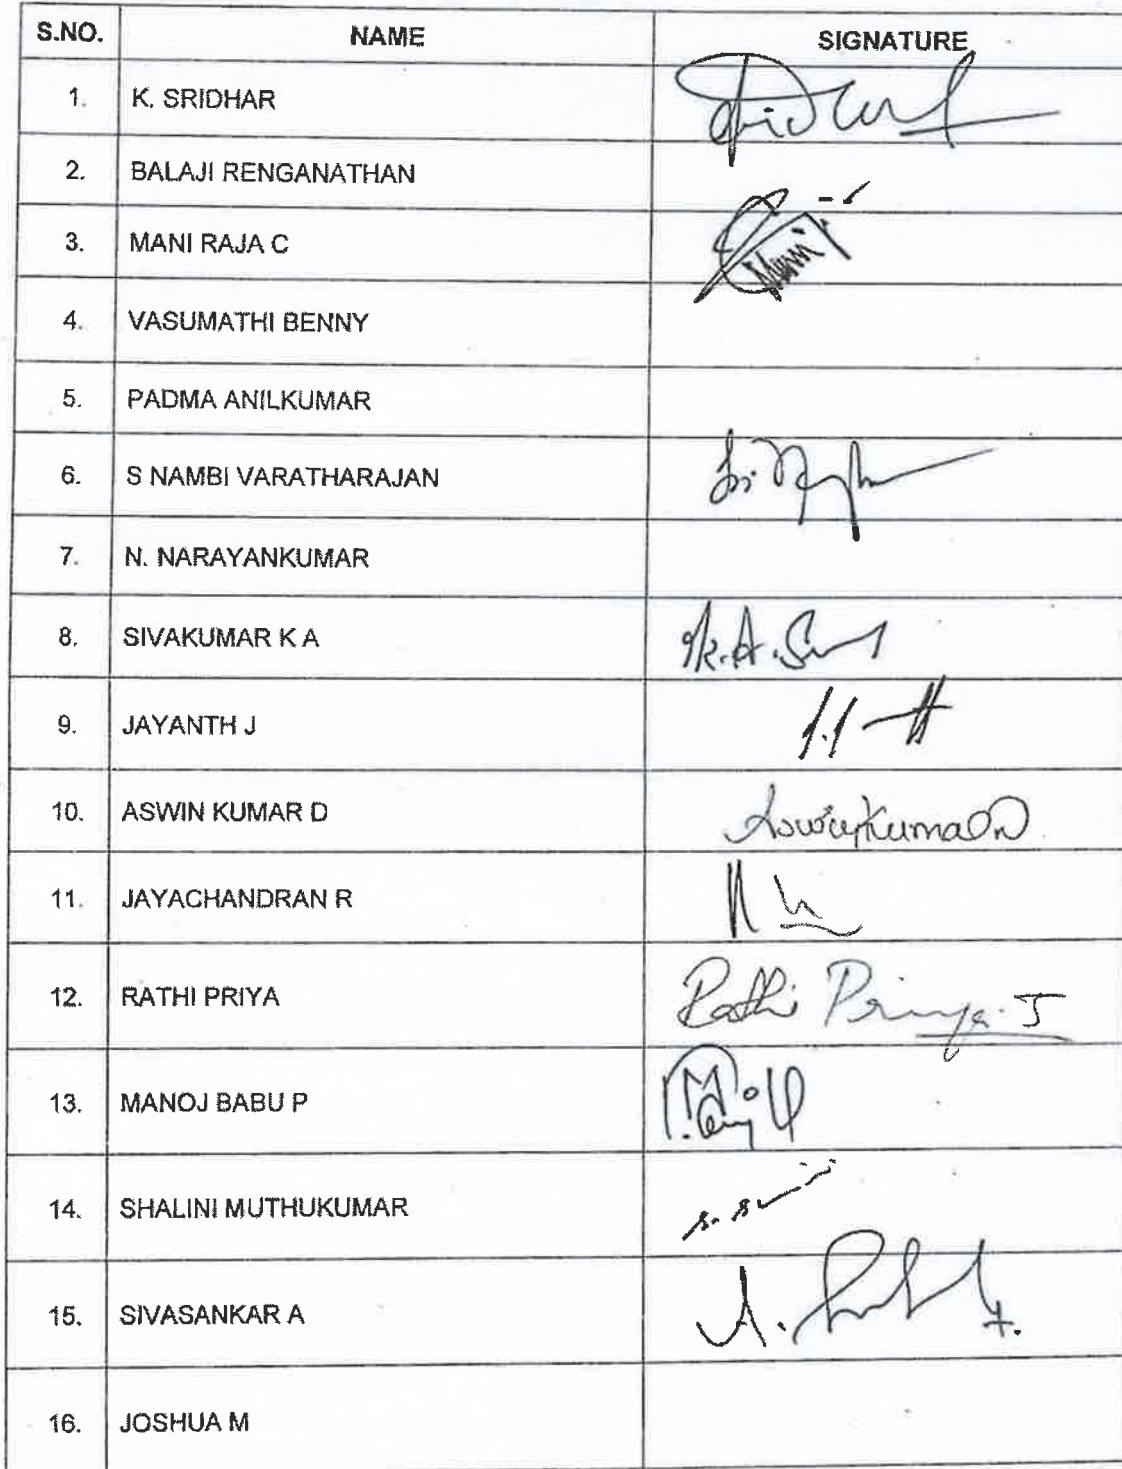 S.NO. NAME SIGNATURE
1. K. SRIDHAR
2. BALAJI RENGANATHAN
3. MANI RAJA C
4. VASUMATHI BENNY
5. PADMA ANILKUMAR
6. S NAMBI VARATHARAJAN
7. N. NARAYANKUMAR
8. SIVAKUMAR K A
9. JAYANTH J
10. ASWIN KUMAR D
11. JAYACHANDRAN R
12. RATHI PRIYA Rathi Priya. J
13. MANOJ BABU P
14. SHALINI MUTHUKUMAR
15. SIVASANKAR A
16. JOSHUA M